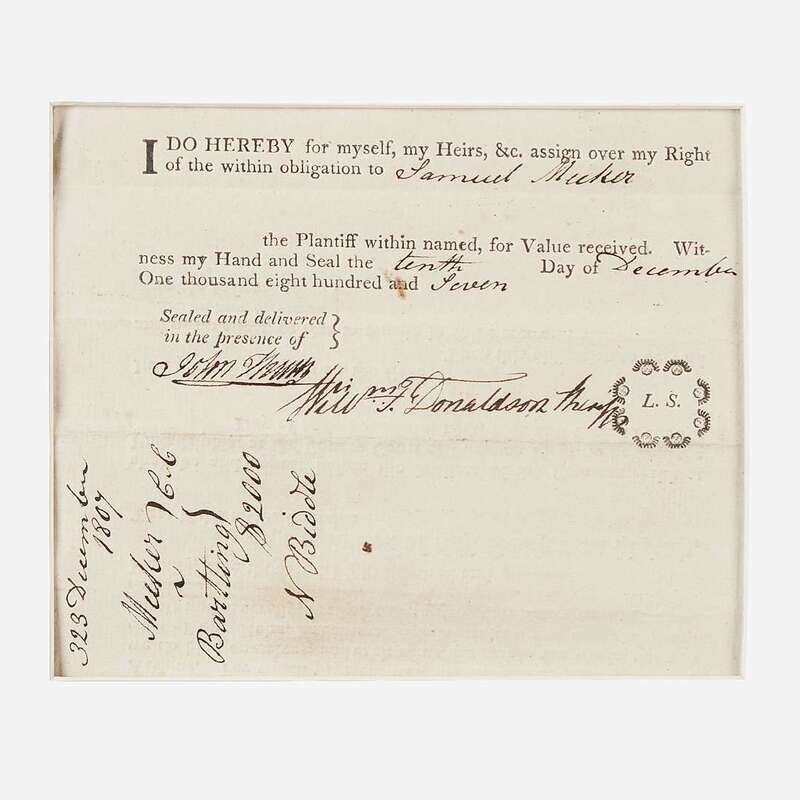 I DO HEREBY for myself, my Heirs, &c. assign over my Right
of the within obligation to Samuel Meeker
the Plantiff within named, for Value received. Wit-
ness my Hand and Seal the tenth Day of December
One thousand eight hundred and Seven
Sealed and delivered }
in the presence of }
John
Will^m T. Donaldson Sheriff
L. S.
323 December
1807
Meeker } C.C
v
Bartling }
$2000
N Biddle